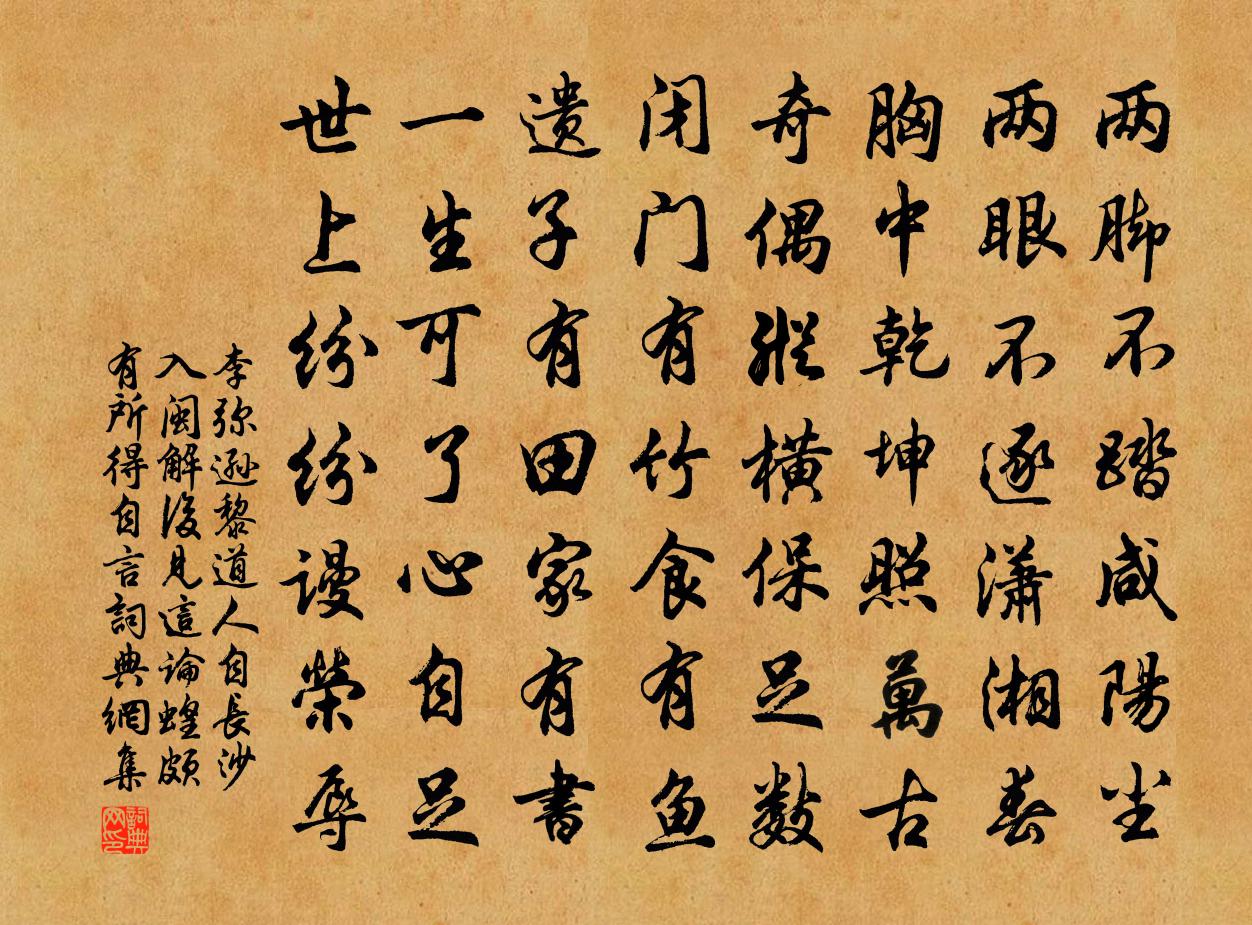 两脚不踏咸陽尘
两眼不逐潇湘春
胸中乾坤照萬古
奇偶縱横保足数
闭门有竹食有鱼
遗子有田家有書
一生可了心自足
世上纷纷谩荣辱
李弥逊黎道人自長沙
入闽解后見這論蝗頗
有所得自言詞典網集
詞典网印